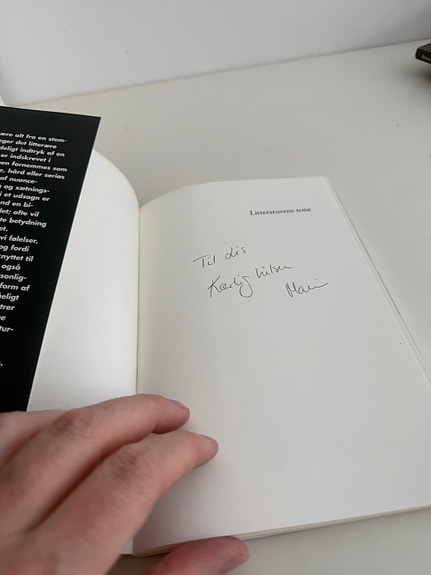 ære alt fra en stem-
eger det litterære
deligt indtryk af en
er indskrevet i
en fornemmes som
e, hård eller seriøs
af nuance-
n og sætnings-
et udsagn er
nd en bi-
det; ofte vil
te betydning
et.
vi følelser,
og fordi
nyttet til
også
rsonlig-
form af
eligt
trer
ge
tur-
Litteraturens tone
Til dis
Kærlig hilsen